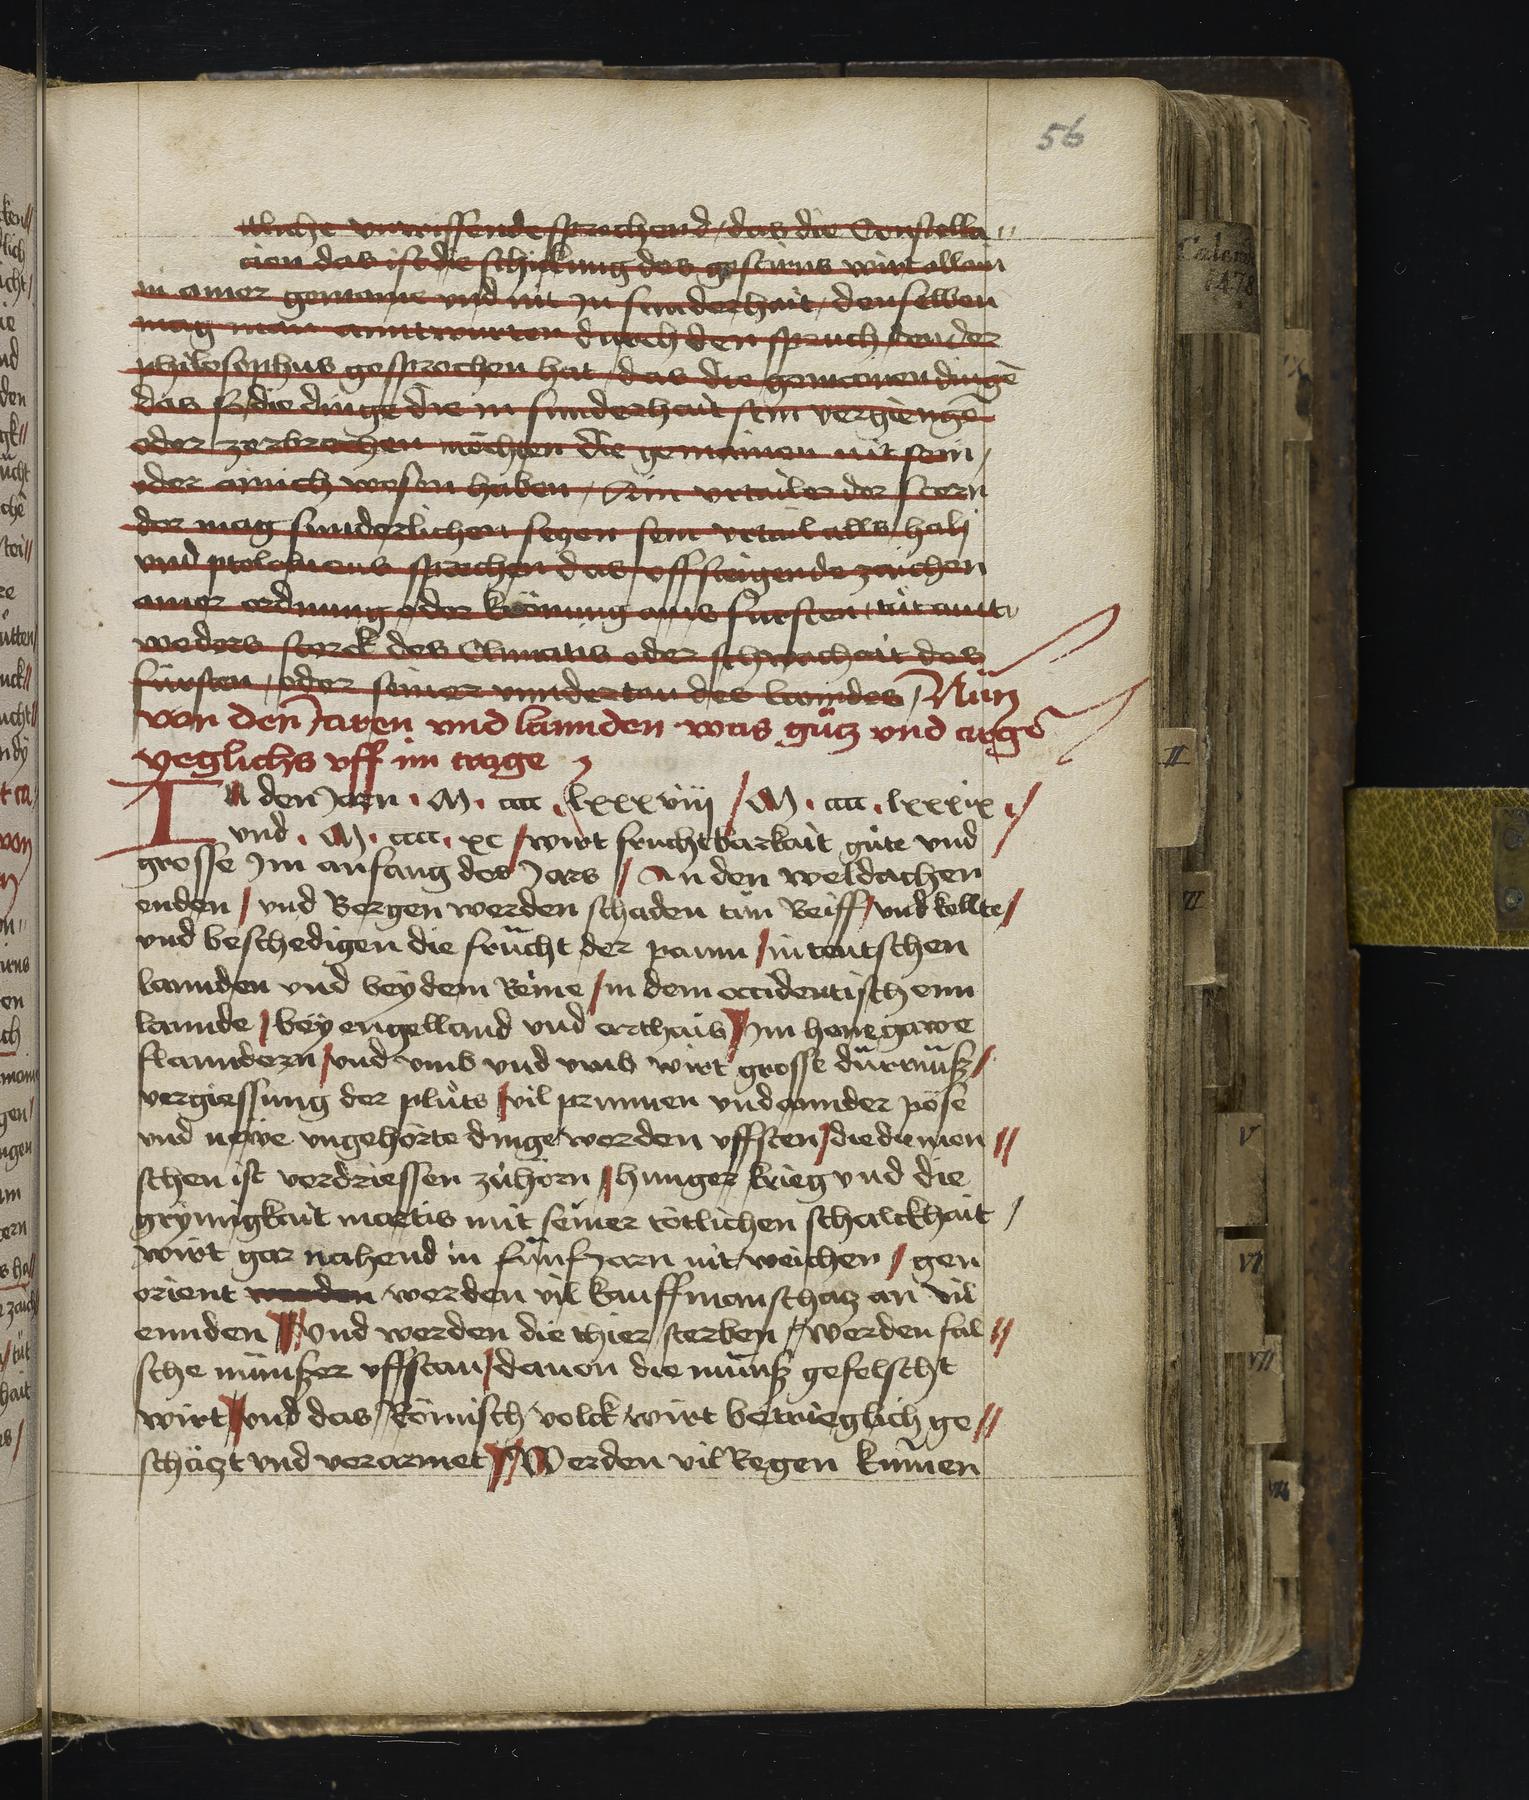 56
etliche vnwissende sprechend / das die Constella„
cion das ist die schickung des gestirns wirt allain
in ainer gemaine vnd nit in sunderhait / denselben
mag man anntwurten durch den spruch / den der
philosophus gesprochen hat / das die gemainen dinge
das ist / die dinge die in sunderhait sein vergiengē
oder zerbrochen möchten die gemainen nit sein /
oder ainich wesen haben / Ain vrtailer der stern
der mag sunderlichen sezen sein vrtail alls / hali
vnd ptolomeus sprechen das vffsteigende zaichen
ainer ordnung oder krönung ains fursten / tůt aint
weders sterck des Climatis oder schwachait des
fürsten / oder seiner vnndertan des lanndes / Nün
von den Jaren vnd lannden was gütz vnd args
yeglichs vff im trage
In den Jarn . M . cccc . lxxxviij / M . cccc . lxxxix . /
vnd . M . cccc . xc / wirt fruchtbarkait gůte vnd
grosse Im anfang des Jars / An den weldachen
enden / vnd Bergen werden schaden tůn Reiff / vnd kellte /
vnd beschedigen die frücht der paum / in teutschen
lannden vnd bey dem Reine / in dem occidentischenn
lannde / bey engelland vnd arthais / Im henegawe
flanndern / vnd vmb vnd vmb wirt grosse dürrnüß /
vergiessung der plůts / vil prunnen vnd annder pöse
vnd newe vngehörte dinge werden vffsten / die die men //
schen ist verdriessen zůhörn / hunger krieg vnd die
grymigkait martis mit seiner tötlichen schalckhait /
wirt gar nahend in fünf Jarn nit weichen / gen
orient werden vil kauffmanschatz an vil
ennden // Vnd werden die thier sterben / werden fal //
sche münßer vffstan / dauon die münß gefelscht
wirt // vnd das Römisch volck wirt betrieglich ge //
schäczt vnd verarmet // Werden vil Regen kumen
Calend
1478
II
V
VI
VII